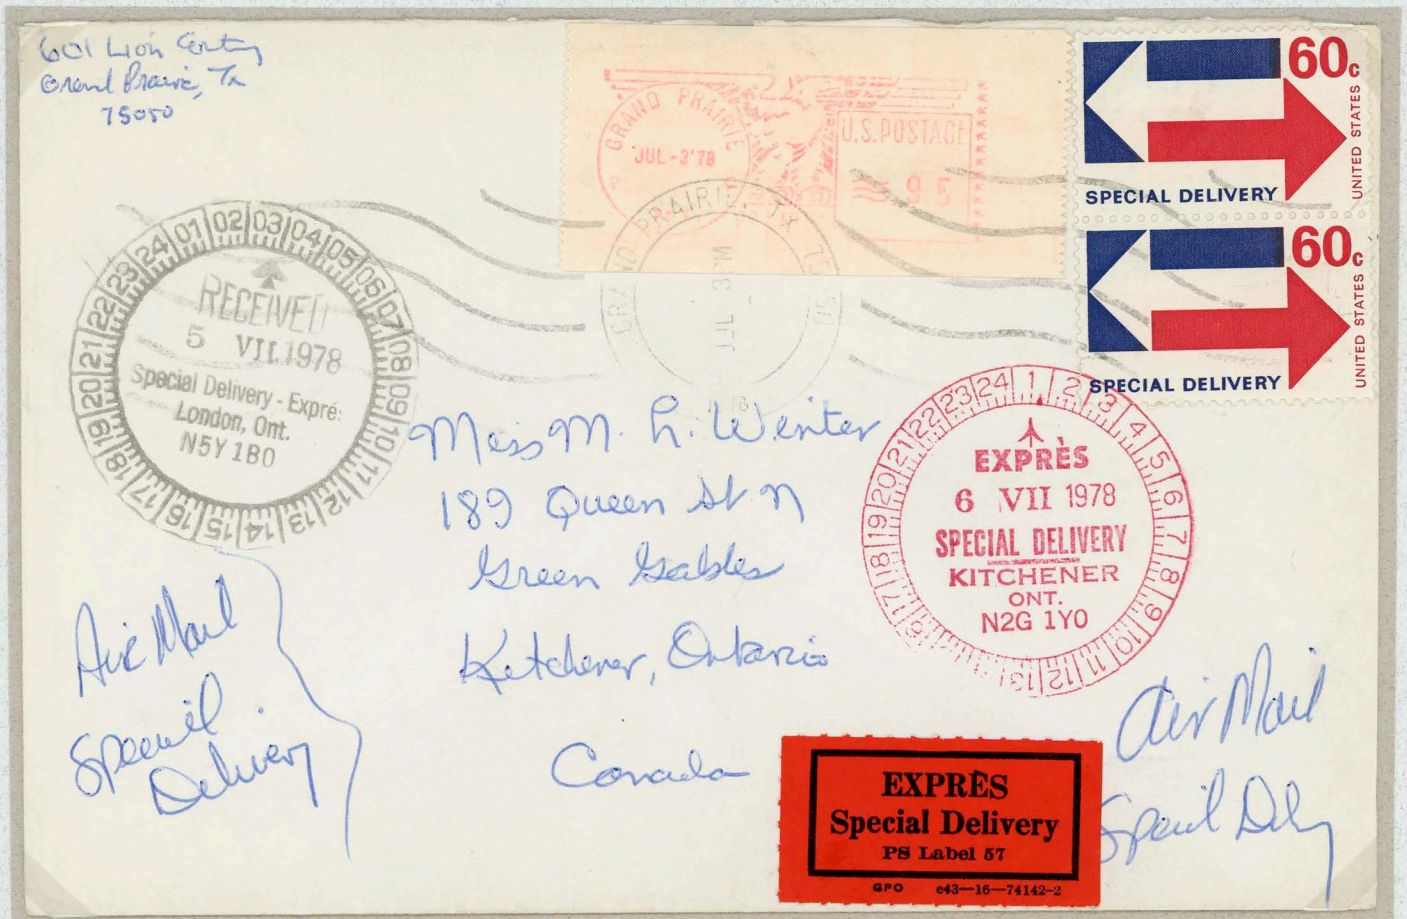 601 Lion Country
Grand Prairie, Tx
75050
GRAND PRAIRIE
JUL -3'78
U.S. POSTAGE
95
60c
SPECIAL DELIVERY
UNITED STATES
60c
SPECIAL DELIVERY
UNITED STATES
GRAND PRAIRIE, TX 75050
JUL 3 PM
01 02 03 04 05 06 07 08 09 10 11 12 13 14 15 16 17 18 19 20 21 22 23 24
RECEIVED
5 VII 1978
Special Delivery - Exprés
London, Ont.
N5Y 1B0
Miss M. L. Winter
189 Queen St N
Green Gables
Kitchener, Ontario
Canada
1 2 3 4 5 6 7 8 9 10 11 12 13 16 17 18 19 20 21 22 23 24
EXPRÈS
6 VII 1978
SPECIAL DELIVERY
KITCHENER
ONT.
N2G 1Y0
Air Mail
Special
Delivery
Air Mail
Special Dely
EXPRÈS
Special Delivery
PS Label 57
GPO c43—16—74142-2